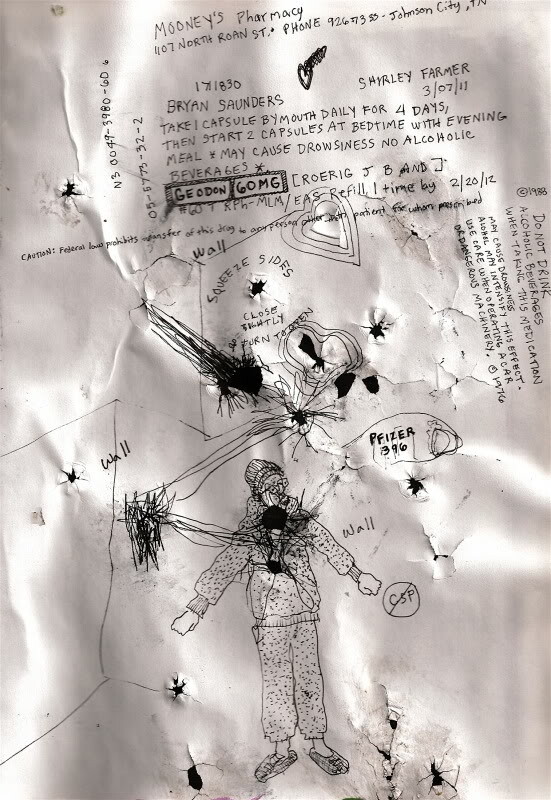 MOONEY'S Pharmacy
1107 NORTH ROAN ST. PHONE 926-7333 - Johnson City, TN
171830
SHIRLEY FARMER
BRYAN SAUNDERS
3/07/11
TAKE 1 CAPSULE BY MOUTH DAILY FOR 4 DAYS,
THEN START 2 CAPSULES AT BEDTIME WITH EVENING
MEAL * MAY CAUSE DROWSINESS NO ALCOHOLIC
BEVERAGES *
GEODON 60MG [ROERIG J B AND]
RPh-MLM/EAS Refill 1 time by 2/20/12
CAUTION: Federal law prohibits transfer of this drug to any person other than patient for whom prescribed
N3 0049-3980-60 6
05-5773-32-2
©1988
DO NOT DRINK
ALCOHOLIC BEVERAGES
WHEN TAKING THIS MEDICATION
MAY CAUSE DROWSINESS
ALCOHOL MAY INTENSIFY THIS EFFECT.
USE CARE WHEN OPERATING A CAR
OR DANGEROUS MACHINERY. ©1976
Wall
SQUEEZE SIDES
CLOSE
TIGHTLY
TURN TO OPEN
PFIZER
396
Wall
Wall
CSP